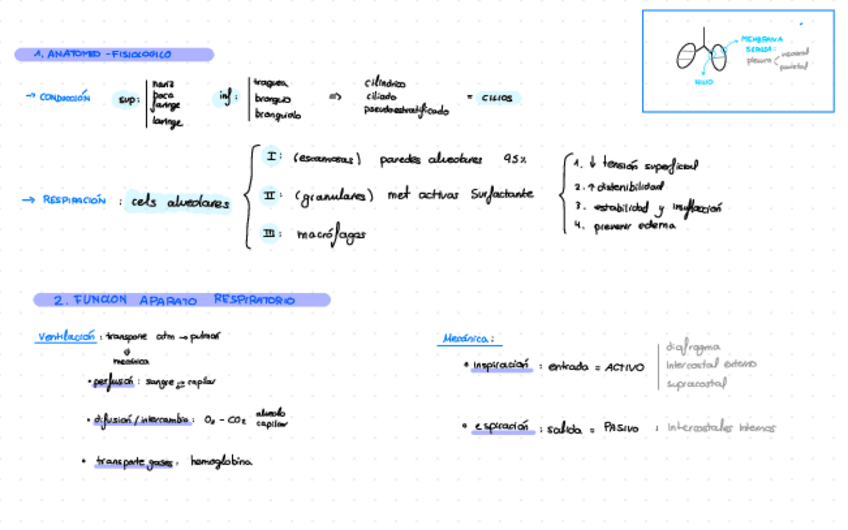 MEMBRANA
SEROSA:
pleura visceral
parietal
HILIO
1. ANATOMO-FISIOLOGICO
→ CONDUCCIÓN sup: nariz
boca
faringe
laringe
inf: traquea
bronquio
bronquiolo
⇒ cilindrico
ciliado
pseudoestratificado
= CILIOS
→ RESPIRACIÓN : cels alveolares
I: (escamosas) paredes alveolares 95%
II: (granulares) met activas Surfactante
III: macrófagos
1. ↓ tensión superficial
2. ↑ distenibilidad
3. estabilidad y insuflación
4. prevenir edema
2. FUNCION APARATO RESPIRATORIO
Ventilación: transporte atm → pulmón
mecánica
• perfusión: sangre ⇄ capilar
• difusión/intercambio: O₂ - CO₂ alveolo
capilar
• transporte gases: hemoglobina
Mecánica:
• inspiración : entrada = ACTIVO
diafragma
intercostal externo
supracostal
• espiración : salida = PASIVO : intercostales internos